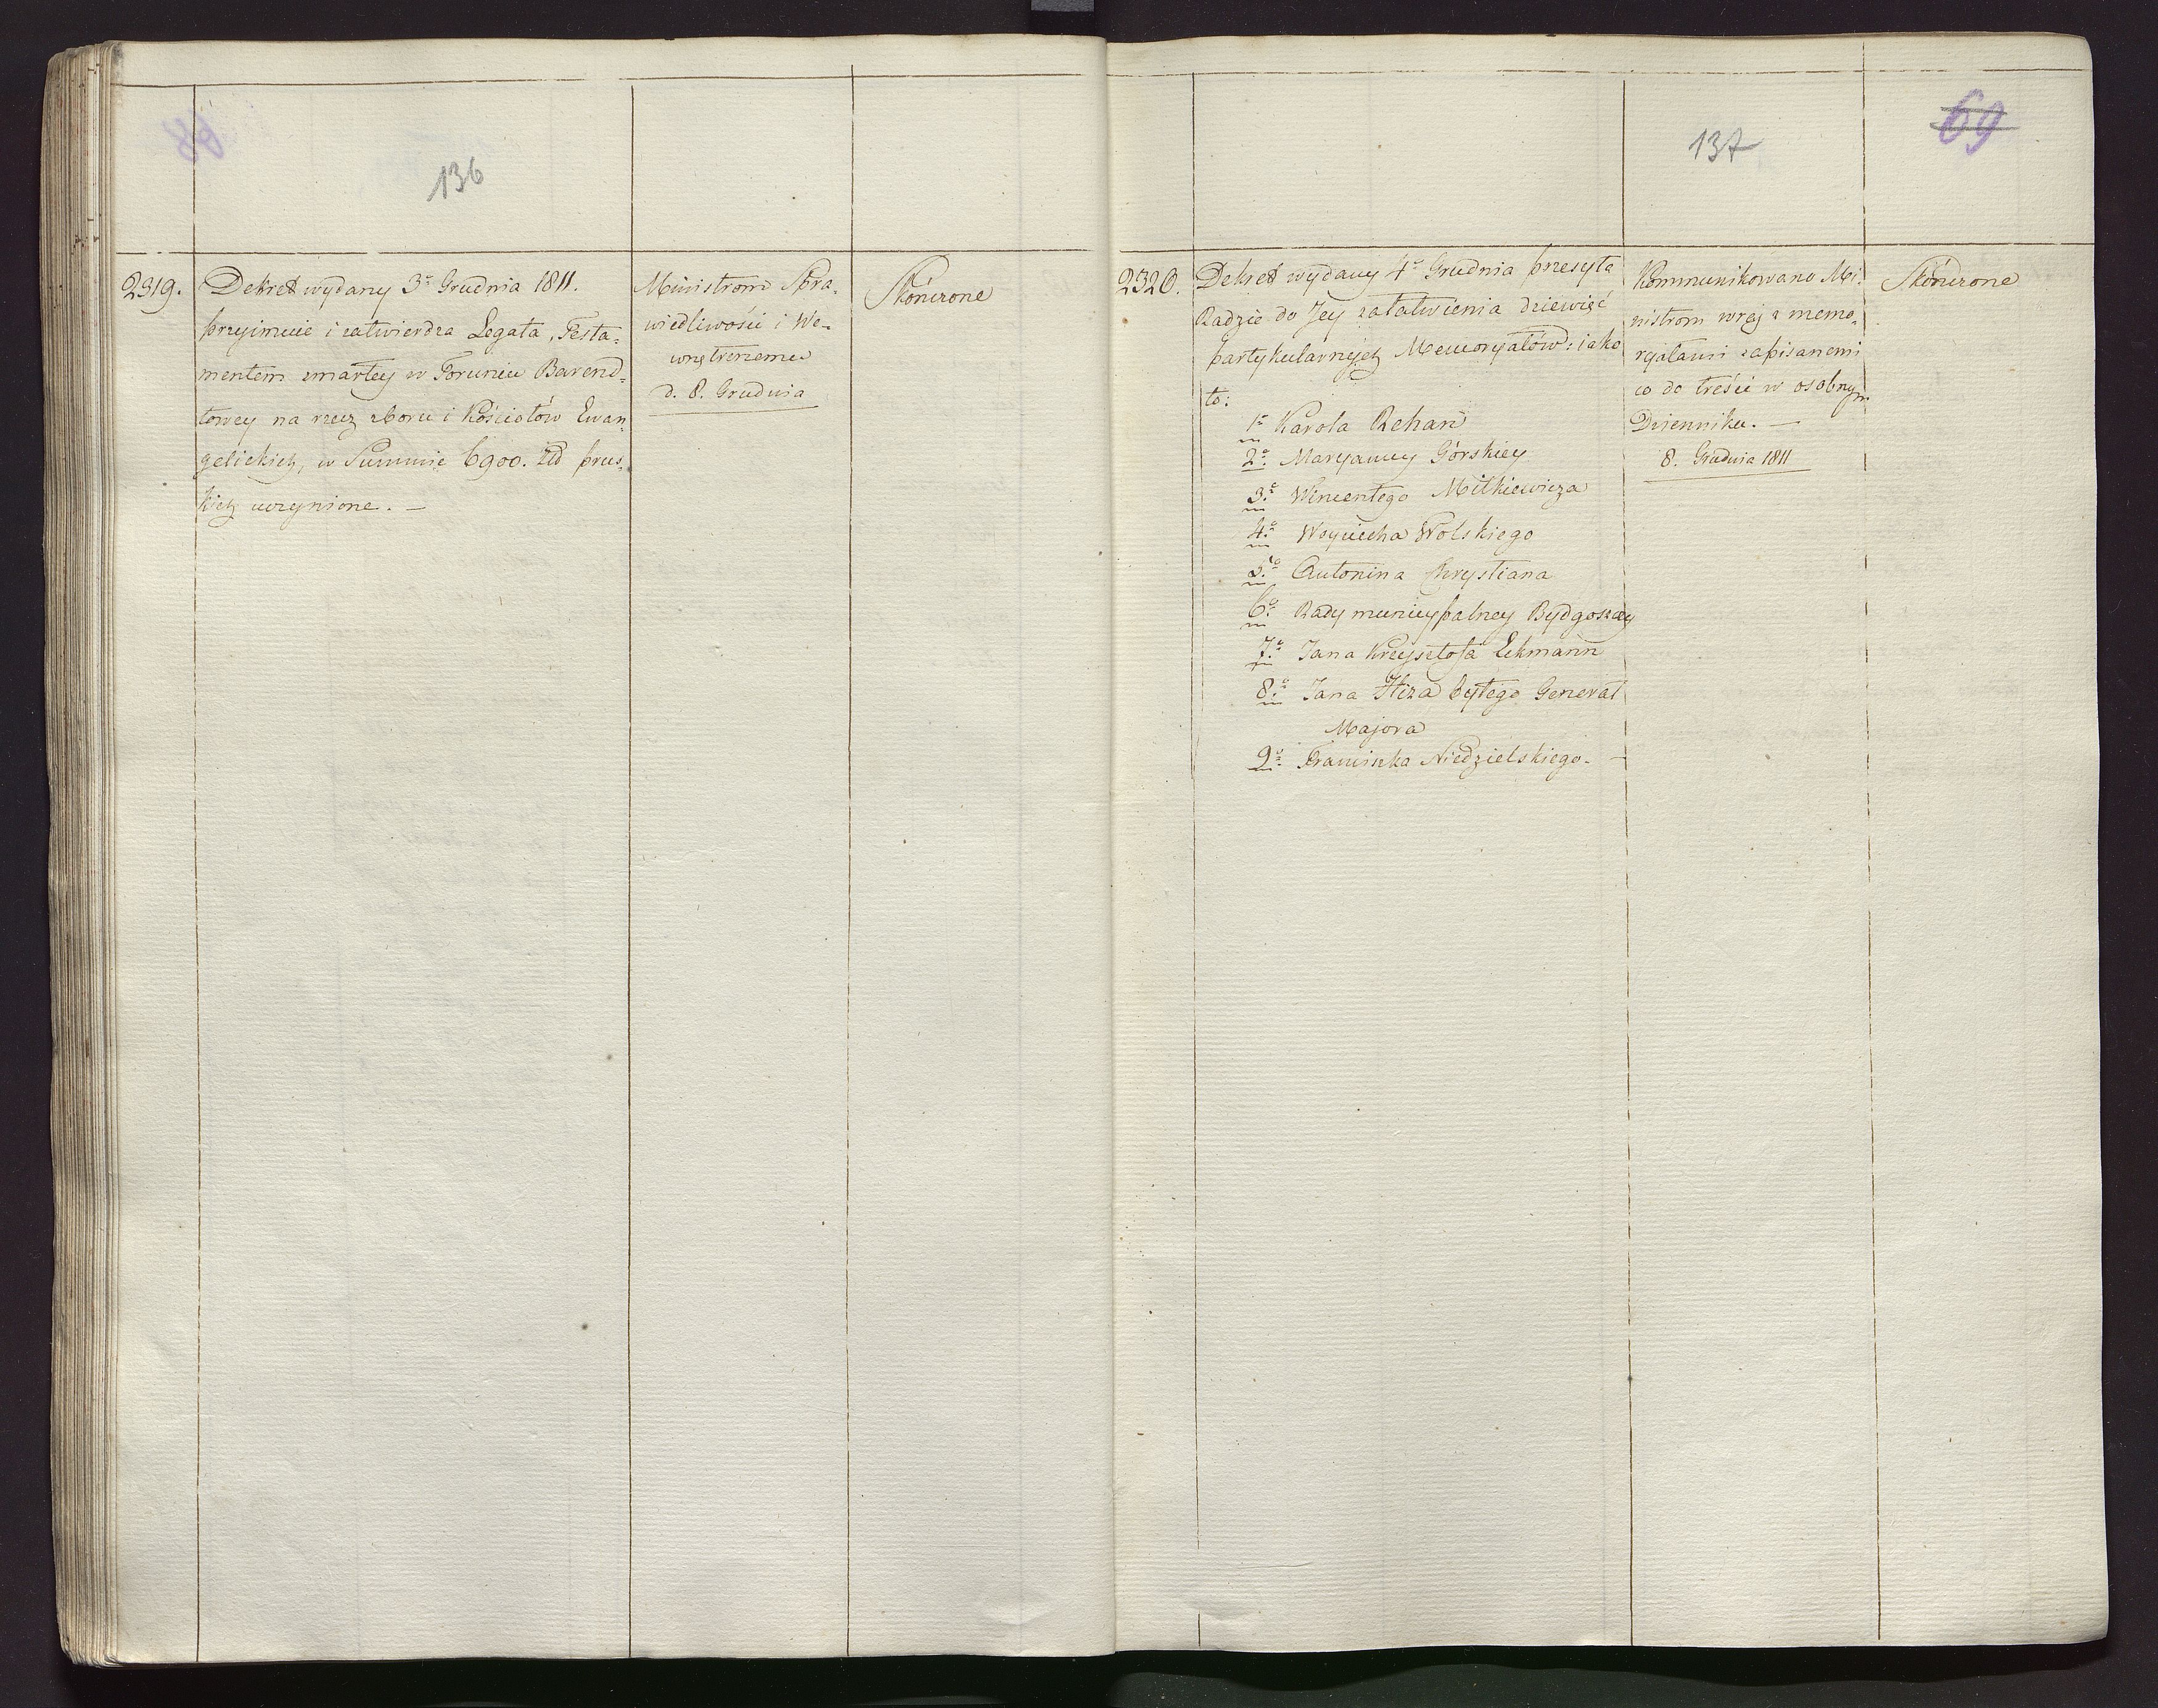 136
2319.
Dekret wydany 3º Grudnia 1811.
przyimuie i zatwierdza Legata, Testa=
mentem zmarłey w Toruniu Barend=
towey na rzecz zboru i Kościołów Ewan=
gelickich, w Summie 6900. Złł prus=
kich uczynione. —
Ministrom Spra=
wiedliwości i We=
wnętrznemu
d. 8. Grudnia
Skończone
137
69
2320.
Dekret wydany 4º Grudnia przesyła
Radzie do Jey załatwienia dziewięć
partykularnych Memoryałów: iako
to:
1º Karola Rehan
2º Maryanny Górskiey
3º Wincentego Mitkiewicza
4º Woyciecha Wolskiego
5º Antonina Chrystiana
6º Rady municypalney Bydgoszczy
7º Jana Krzysztofa Lehmann
8º Jana byłego Generał
Majora
9º Franciszka Niedzielskiego. —
Kommunikowano Mi=
nistrom wraz z memo=
ryałami zapisanemi
co do treści w osobnym
Dzienniku. —
8. Grudnia 1811
Skończone